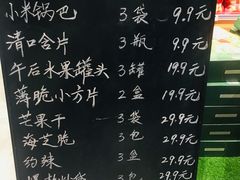 小米锅巴 3袋 9.9元
清口含片 3瓶 9.9元
午后水果罐头 3罐 19.9元
薄脆小方片 2盒 19.9元
芒果干 3袋 29.9元
海苔脆 3包 29.9元
约辣 3盒 29.9元
3包 29.9元